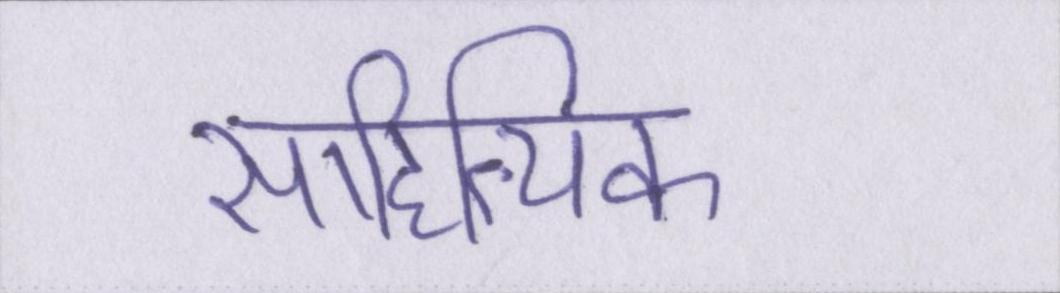 साहित्यिक